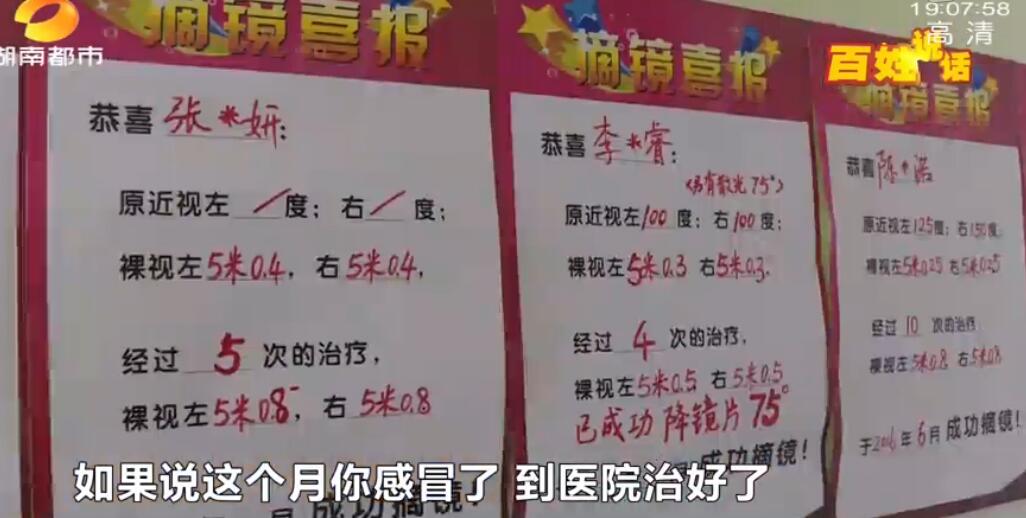 19:07:58
高清
湖南都市
百姓说话
摘镜喜报
恭喜 张*妍:
原近视左 / 度; 右 / 度;
裸视左5米0.4, 右5米0.4,
经过 5 次的治疗,
裸视左5米0.8⁻, 右5米0.8
月 成功摘镜!
摘镜喜报
恭喜 李*睿:
<另有散光75°>
原近视左100度; 右100度;
裸视左5米0.3 右5米0.3.
经过 4 次的治疗,
裸视左5米0.5 右5米0.5
已成功降镜片75°
成功摘镜!
摘镜喜报
恭喜 陈*诺
原近视左125度; 右150度;
裸视左5米0.25 右5米0.25
经过 10 次的治疗,
裸视左5米0.8 右5米0.8
于2016年6月成功摘镜!
如果说这个月你感冒了 到医院治好了